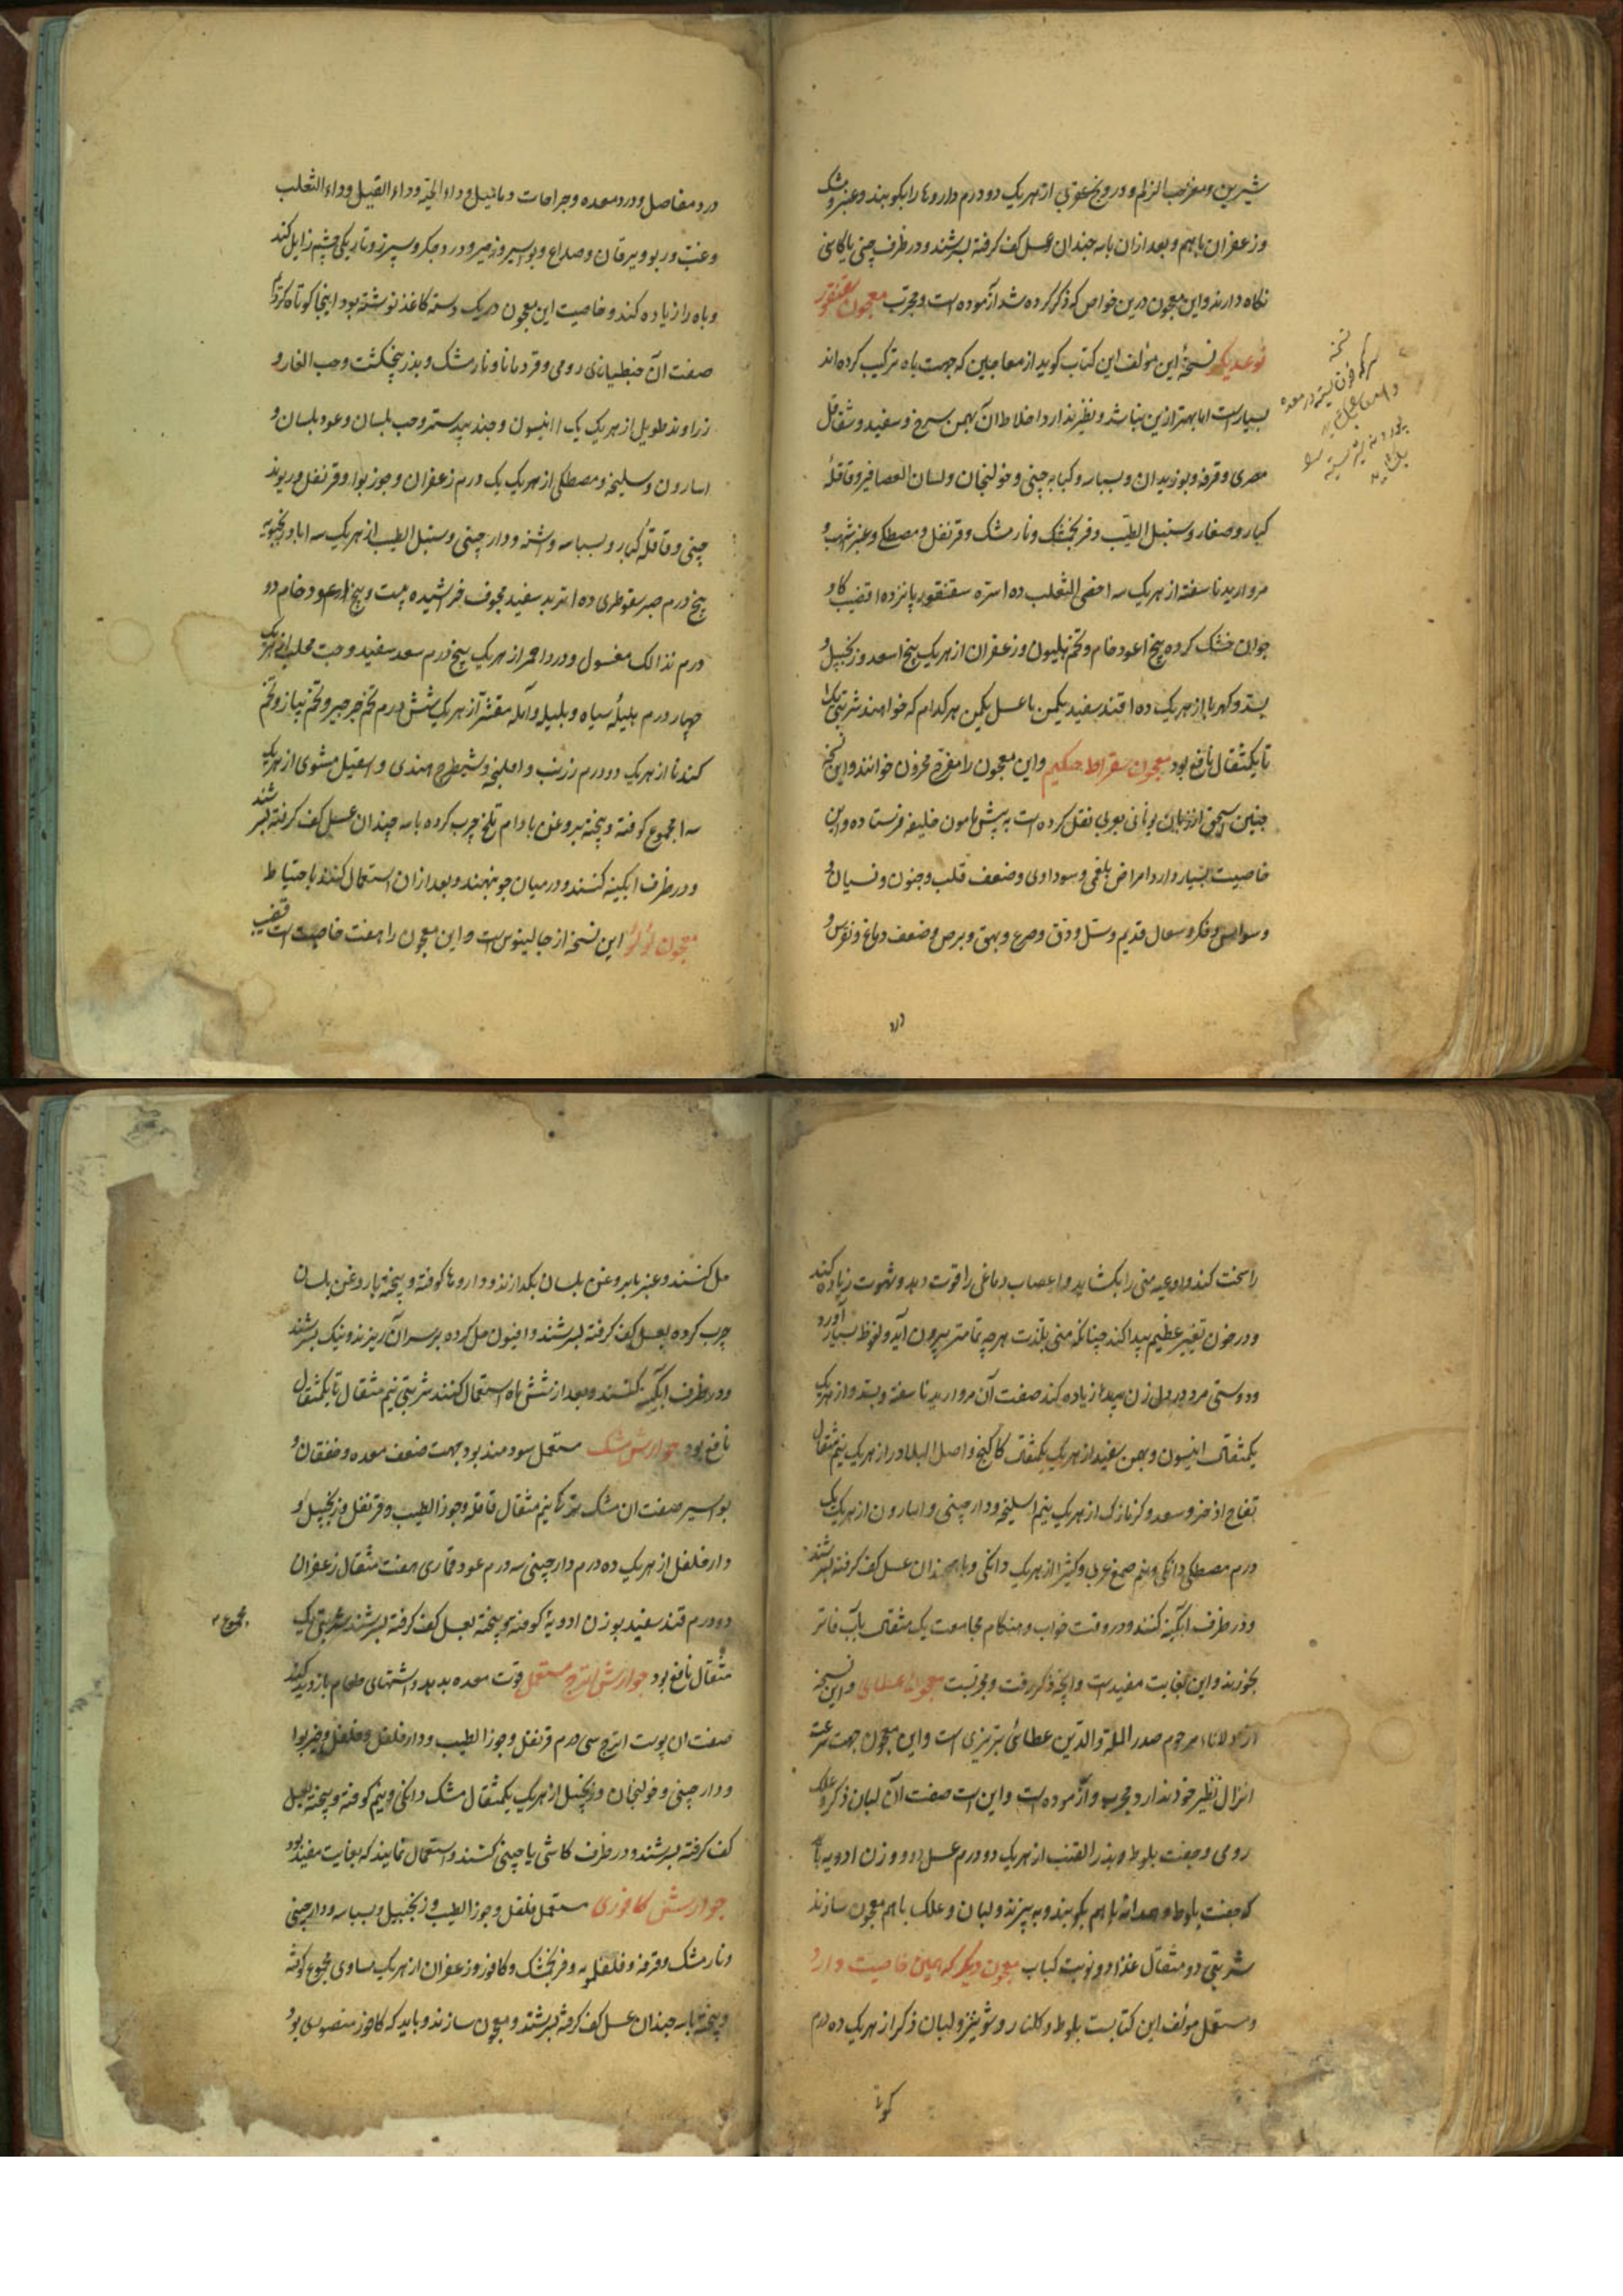 شیرین و مغز حب الزلم و درونج عقربی از هر یک دو درم داروها را بکوبند و عنبر و مشک
و زعفران باهم و بعد از آن با سه چندان عسل کف گرفته بسرشند و در ظرف چینی یا کاشی
نگاه دارند و این معجون درین خواص که ذکر کرده شد آزموده است و مجرب معجون سقنقور
نوعدیگر نسخهٔ این مؤلف این کتاب کوید از معاجین که جهت باه ترکیب کرده‌اند
بسیارست اما بهتر ازین نباشد و نظیر ندارد اخلاط آن بهمن سرخ و سفید و شقاقل
مصری و قرفه و بوزیدان و بسباسه و کبابه چینی و خولنجان و لسان العصافیر و قاقلهٔ
کبار و صغار و سنبل الطیب و فرنجمشک و نارمشک و قرنفل و مصطکی و عنبر اشهب و
مروارید ناسفته از هر یک سه ا خصی الثعلب ده ا سره سقنقور پانزده ا قضیب کاو
جوان خشک کرده پنج ا عود خام و تخم هلیون و زعفران از هر یک پنج ا سعد و زنجبیل و
بسد و کهربا از هر یک ده ا قند سفید یکمن با عسل یکمن هر کدام که خواهند شربتی یک ا
تا یکمثقال نافع بود معجون سقراط حکیم و این معجون را مفرح محزون خوانند و این نسخه
حنین اسحق از زبان یونانی بعربی نقل کرده است به پیش مامون خلیفه فرستاده و این
خاصیت بسیار دارد امراض بلغمی و سوداوی و ضعف قلب و جنون و نسیان و
وسواس و فکر و سعال قدیم و سل و دق و صرع و بهق و برص و ضعف دماغ و نقرس و
درد
نسخه
درد مفاصل و درد معده و جراحات و دمامیل و داء الحیة و داء الفیل و داء الثعلب
و عنت و ربو و یرقان و صداع و بواسیر و زحیر و درد جگر و سپرز و تاریکی چشم زایل کند
و باه را زیاده کند و خاصیت این معجون در یک دسته کاغذ نوشته بود اینجا کوتاه کردم
صفت آن جنطیانای رومی و قردمانا و نارمشک و بذر پنجنکشت و حب الغار و
زراوند طویل از هر یک یک ا انیسون و جند بیدستر و حب بلسان و عود بلسان و
اسارون و سلیخه و مصطکی از هر یک یک درم زعفران و جوز بوا و قرنفل و ریوند
چینی و قاقلهٔ کبار و بسباسه و اشنه و دارچینی و سنبل الطیب از هر یک سه ا بادرنجبویه
پنج درم صبر سقوطری ده ا تربد سفید مجوف خراشیده بیست و پنج ا عود خام دو
درم نذ ا لک مغسول و ورد احمر از هر یک پنج درم سعد سفید و حب محلب از هر یک
چهار درم هلیلهٔ سیاه و بلیله و آمله مقشر از هر یک شش درم تخم جرجیر و تخم پیاز و تخم
کندنا از هر یک دو درم زرنب و املج و شیطرج هندی و اسقیل مشوی از هر یک
سه ا مجموع کوفته و بیخته بروغن بادام تلخ چرب کرده با سه چندان عسل کف گرفته بسرشند
و در ظرف ابکینه کنند و در میان جو بنهند و بعد از آن استعمال کنند با حتیاط
معجون لؤلؤ این نسخه از جالینوس است و این معجون را هفت خاصیت است قضیب
را سخت کند و اوعیه منی را بکشاید و اعصاب دماغی را قوت دهد و شهوت زیاده کند
و در خون تغییر عظیم پیدا کند چنانکه منی بلذت هرچه تمامتر بیرون آید و نعوظ بسیار آورد
و دوستی مرد در دل زن پیدا و زیاده کند صفت آن مروارید ناسفته و بسد از هر یک
یکمثقال انیسون و بهمن سفید از هر یک یکمثقال کاکنج و اصل البلادر از هر یک نیم مثقال
تفاح اذخر و سعد و کزمازک از هر یک نیم ا سلیخه و دارچینی و اسارون از هر یک یک
درم مصطکی دانکی و نیم صمغ عربی و کتیرا از هر یک دانکی و با سه چندان عسل کف گرفته بسرشند
و در ظرف ابکینه کنند و در وقت خواب و هنکام مجامعت یک مثقال باب فاتر
بخورند و این بغایت مفیدست و آنچه ذکر رفت و مجربست معجون عطایی و این نسخه
از مولانا مرحوم صدر الملة والدین عطائی تبریزی است و این معجون جهت سرعت
انزال نظیر خود ندارد و مجرب و آزموده است و این است صفت آن لبان ذکر و علک
رومی و جفت بلوط و بذر القنب از هر یک دو درم عسل دو وزن ادویه با
که جفت بلوط و همدانه باهم بکوبند و ببیزند و لبان و علک باهم معجون سازند
شربتی دو مثقال غذا دو نوبت کباب معجون دیگر که همین خاصیت دارد
و مستعمل مولف این کتابست بلوط و کلنار و شونیز و لبان ذکر از هر یک ده درم
کوفته
حل کنند و عنبر با بروغن بلسان بکدازند و داروها کوفته و بیخته با روغن بلسان
چرب کرده بعسل کف گرفته بسرشند و افیون حل کرده بر سر آن ریزند و نیک بسرشند
و در ظرف ابکینه کنند و بعد از شش ماه استعمال کنند شربتی نیم مثقال تا یکمثقال
نافع بود جوارش مشک مستعمل سودمند بود جهت ضعف معده و خفقان و
بواسیر صفت آن مشک ترکی نیم مثقال قاقله و جوز الطیب و قرنفل و زنجبیل و
دارفلفل از هر یک ده درم دارچینی سه درم عود قماری هفت مثقال زعفران
دو درم قند سفید بوزن ادویه کوفته و بیخته بعسل کف گرفته بسرشند شربتی یک
مجموع
مثقال نافع بود جوارش اترج مستعمل قوت معده بدهد و اشتهای طعام بازدید کند
صفت آن پوست اترج سی درم قرنفل و جوز الطیب و دارفلفل و فلفل و خیربوا
و دارچینی و خولنجان و زنجبیل از هر یک یکمثقال مشک دانکی و نیم کوفته و بیخته بعسل
کف گرفته بسرشند و در ظرف کاشی یا چینی کنند و استعمال نمایند که بغایت مفید بود
جوارش کافوری مستعمل فلفل و جوز الطیب و زنجبیل و بسباسه و دارچینی
و نارمشک و قرفه و فلفلمویه و فرنجمشک و کافور و زعفران از هر یک مساوی مجموع کوفته
و بیخته با سه چندان عسل کف گرفته بسرشند و معجون سازند و باید که کافور منصوری بود